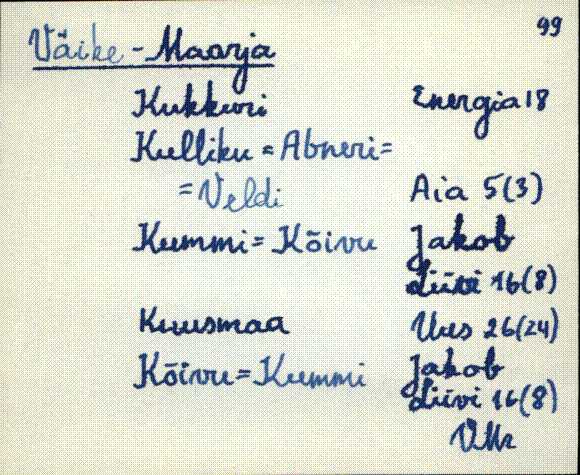 99
Väike-Maarja
Kukkuri Energia 18
Kulliku = Abneri =
= Veldi Aia 5(3)
Kummi = Kõivu Jakob
Liivi 16(8)
Kuusmaa Uus 26(24)
Kõivu = Kummi Jakob
Liivi 16(8)